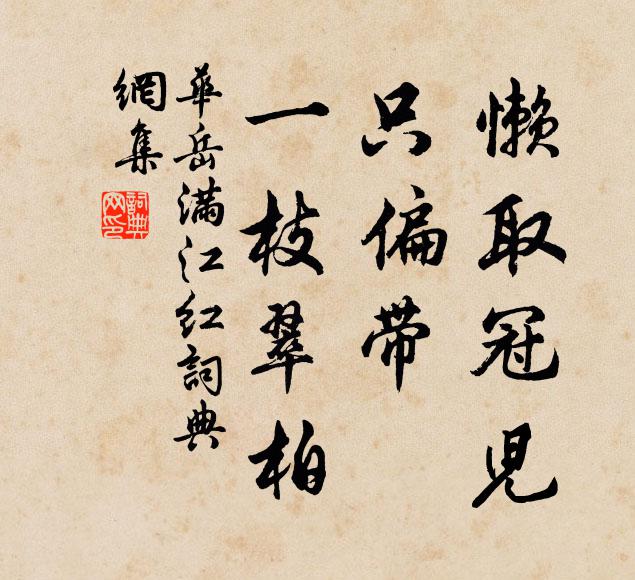 懶取冠兒
只偏帶
一枝翠柏
華岳滿江紅詞典
網集
詞典
网印